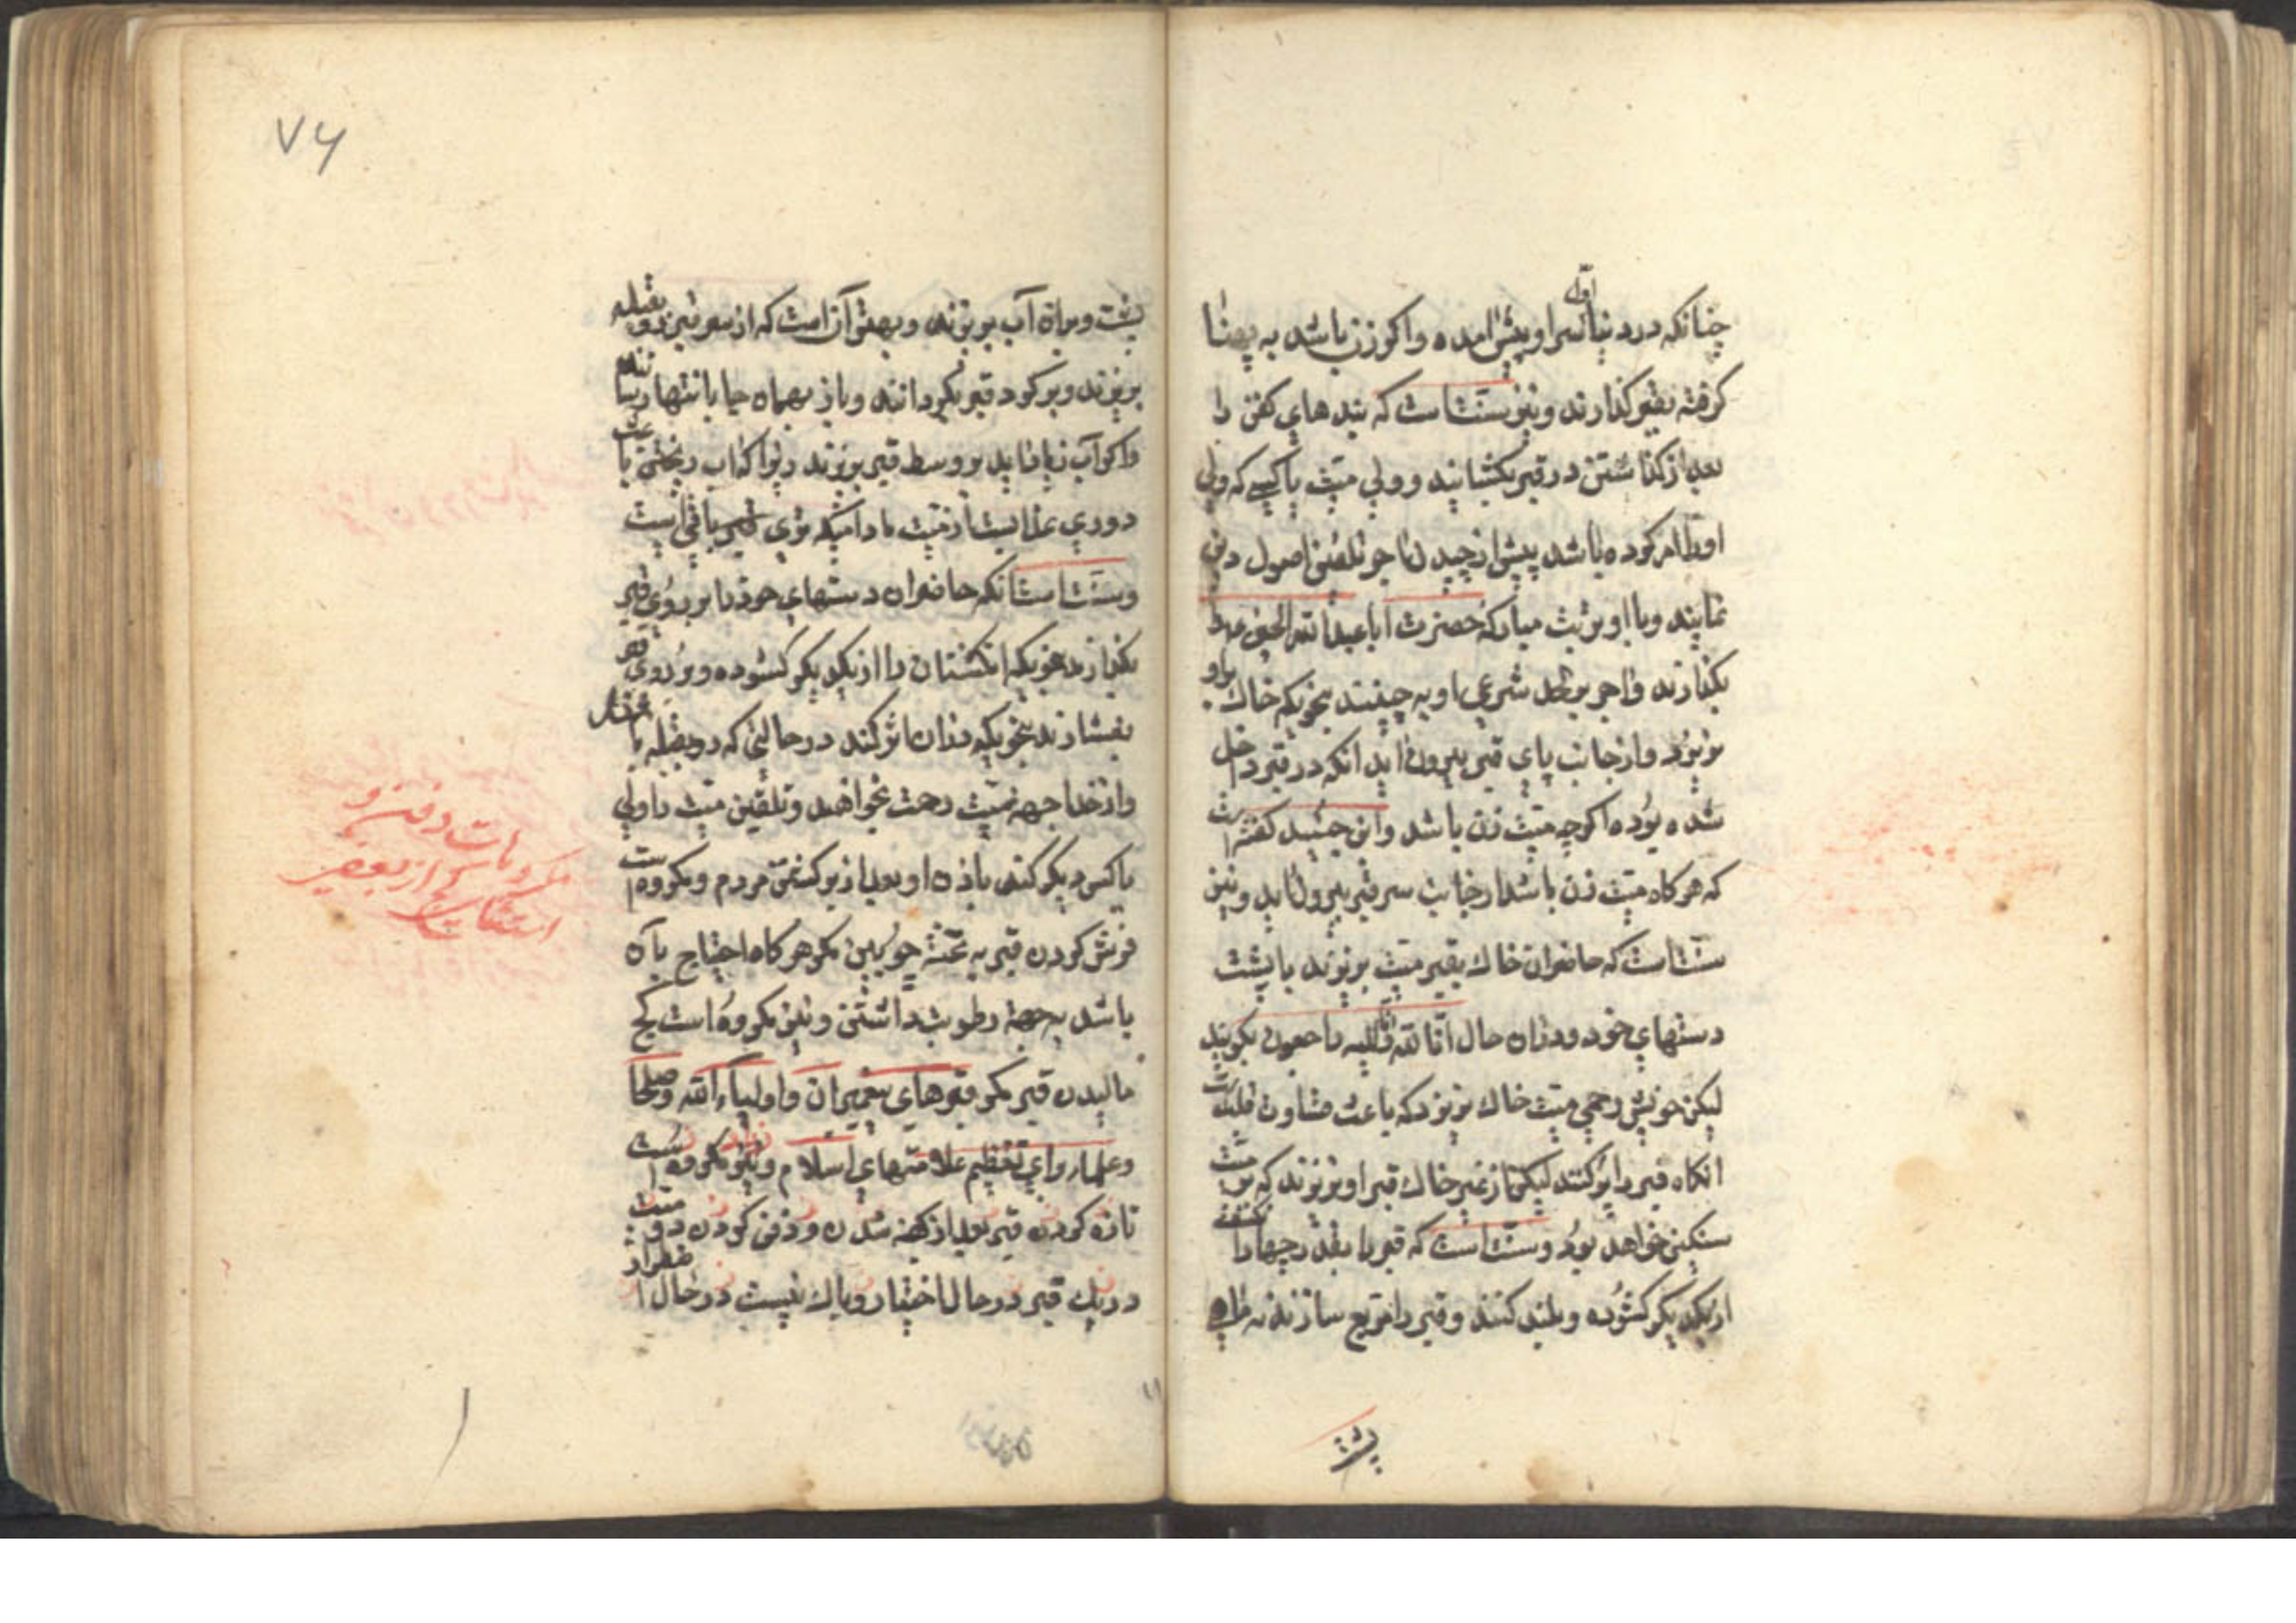 چنانکه در دنیا اول سر او پیش آمده و اگر زن باشد به پهنا
گرفته بقبر گذارند و نیز سنت است که بندهای کفن را
بعد از گذاشتن در قبر بگشایند و ولی میت یا کسی که ولی
او را امر کرده باشد پیش از چیدن آجر تلقین اصول دین
نمایند و با او تربت مبارکه حضرت اباعبدالله الحسین علیه
بگذارند و آجر بر لحد شرعی او به چینند بنحویکه خاک بر او
نریزد و از جانب پای قبر بیرون اید انکه در قبر داخل
شده بوده اگرچه میت زن باشد و ابن جنید گفته است
که هرگاه میت زن باشد از جانب سر قبر بیرون اید و نیز
سنت است که حاضران خاک بقبر میت بریزند با پشت
دستهای خود و در ان حال انا لله و انا الیه راجعون بگویند
لیکن خویش رحمی میت خاک نریزد که باعث قساوت قلبست
انگاه قبر را پر کنند لیکن از غیر خاک قبر او نریزند که بر میت
سنگین خواهد بود و سنت است که قبر را بقدر چهار انگشت
از یکدیگر گشوده و بلند کنند و قبر را مربع سازند نه ماهی
پشت
۷۶
پشت و براه آب بریزند و بهتر آن است که از سر قبر رو بقبله
بریزند و بر گود قبر بگردانند و باز بهمان جا بانتها رسانند
و اگر آب زیاد اید بر وسط قبر بریزند زیرا که آب ریختن باعث
دوری عذابست از میت مادامیکه تری قبر باقی است
و سنت است انکه حاضران دستهای خود را بر روی قبر
بگذارند بنحویکه انگشتان را از یکدیگر گشوده و بر روی قبر
بفشارند بنحویکه در ان اثر کند در حالتی که رو بقبله باشند
و از خدا جهة میت رحمت بخواهند و تلقین میت را ولی
یا کس دیگر کند باذن او بعد از برگشتن مردم و مکروه است
فرش کردن قبر به تخته چوبین مگر هرگاه احتیاج بآن
باشد به جهة رطوبت داشتن و نیز مکروه است گچ
مالیدن قبر مگر قبرهای پیغمبران و اولیاء الله و صلحا
و علماء برای تعظیم علامتهای اسلام و نیز مکروه است
تازه کردن قبر بعد از کهنه شدن و دفن کردن دو میت
در یک قبر در حال اختیار و باک نیست در حال اضطرار
مکروهات دفن و
استثنای گچ از بعضی